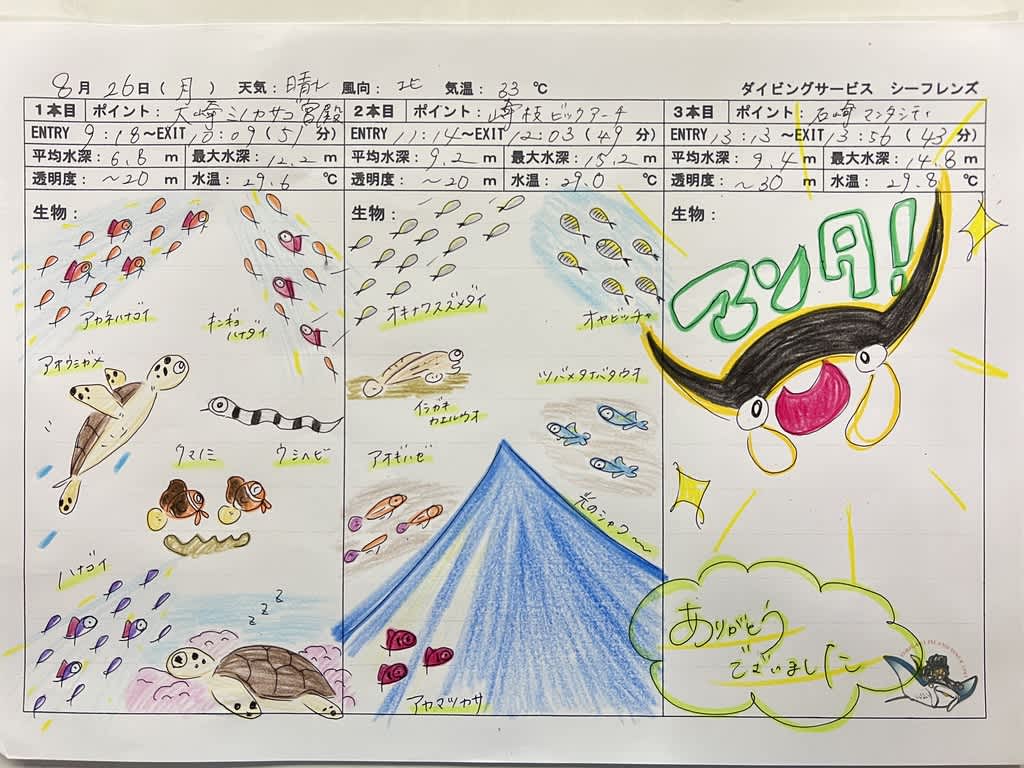 8月 26日(月) 天気:晴れ 風向:北 気温:33 ℃ ダイビングサービス シーフレンズ
1本目 ポイント:大崎 シカサゴ宮殿
ENTRY 9:18~EXIT 10:09(51分)
平均水深:6.8 m 最大水深:12.2 m
透明度:~20 m 水温:29.6 ℃
生物:
アカネハナゴイ
キンギョ
ハナダイ
アオウミガメ
クマノミ
ウミヘビ
ハナゴイ
z
z
z
2本目 ポイント:崎枝 ビックアーチ
ENTRY 11:14~EXIT 12:03(49分)
平均水深:9.2 m 最大水深:15.2 m
透明度:~20 m 水温:29.0 ℃
生物:
オキナワスズメダイ
オヤビッチャ
イシガキ
カエルウオ
ツバメタナバタウオ
アオギハゼ
光のシャワー〜
アカマツカサ
3本目 ポイント:石崎 マンタシティ
ENTRY 13:13~EXIT 13:56(43分)
平均水深:9.4 m 最大水深:14.8 m
透明度:~30 m 水温:29.8 ℃
生物:
マンタ!
ありがとう
ございました